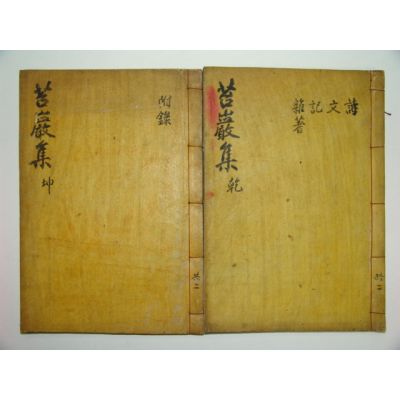 詩
文
記
雜著
苔巖集 乾
共二
附錄
苔巖集 坤
共二